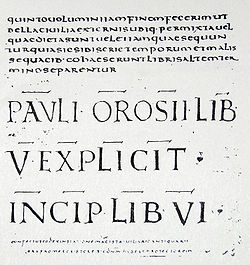 QUINTOVOLUMINIIAMFINEMFECERIMUT
BELLACIUILIAEXTERNISUBIQ·PERMIXTAUEL
QUAEDICTASUNTUELETIAMQUAESEQUN
TURQUIASIESIBISERIETEMPORUMETMALIS
SEQUACIB·COHAESERUNTLIBRISALTEMTER
MINOSEPARENTUR
PAULI OROSII LIB
V·EXPLICIT·
INCIP·LIB·VI·